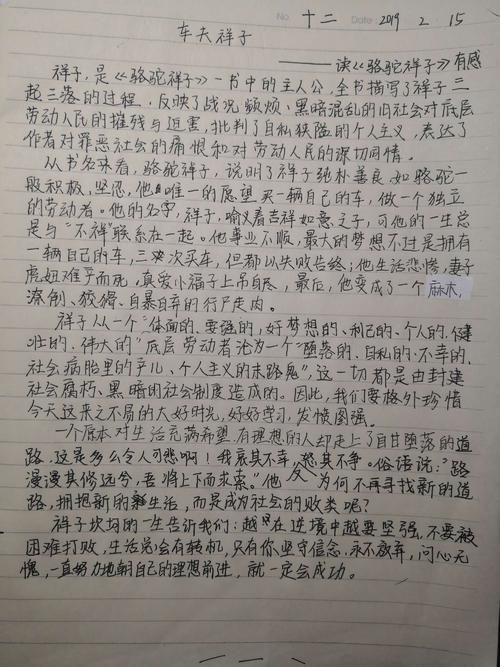 No. 十二 Date 2019 2 15
车夫祥子
——读《骆驼祥子》有感
祥子,是《骆驼祥子》一书中的主人公,全书描写了祥子三
起三落的过程,反映了战况频烦、黑暗混乱的旧社会对底层
劳动人民的摧残与迫害,批判了自私狭隘的个人主义,表达了
作者对罪恶社会的痛恨和对劳动人民的深切同情。
从书名来看,骆驼祥子,说明了祥子纯朴善良,如骆驼一
般积极,坚忍,他唯一的愿望买一辆自己的车,做一个独立
的劳动者。他的名字,祥子,喻义着吉祥如意之子,可他的一生总
是与“不祥”联系在一起。他事业不顺,最大的梦想不过是拥有
一辆自己的车,三次买车,但都以失败告终;他生活悲惨,妻子
虎妞难产而死,真爱小福子上吊自尽,最后,他变成了一个麻木,
潦倒、狡猾、自暴自弃的行尸走肉。
祥子从一个“体面的、要强的,好梦想的、利己的、个人的、健
壮的、伟大的”底层劳动者沦为一个“堕落的、自私的、不幸的、
社会病胎里的产儿、个人主义的末路鬼”,这一切都是由封建
社会腐朽、黑暗的社会制度造成的。因此,我们要格外珍惜
今天这来之不易的大好时光,好好学习,发愤图强。
一个原本对生活充满希望、有理想的人却走上了自甘堕落的道
路,这是多么令人可悲啊!我哀其不幸,怒其不争。俗语说:“路
漫漫其修远兮,吾将上下而求索。”他又为何不再寻找新的道
路,拥抱新的新生活,而是成为社会的败类呢?
祥子坎坷的一生告诉我们:越是在逆境中越要坚强,不要被
困难打败,生活总会有转机,只有你坚守信念,永不放弃,问心无
愧,一直努力地朝自己的理想前进,就一定会成功。